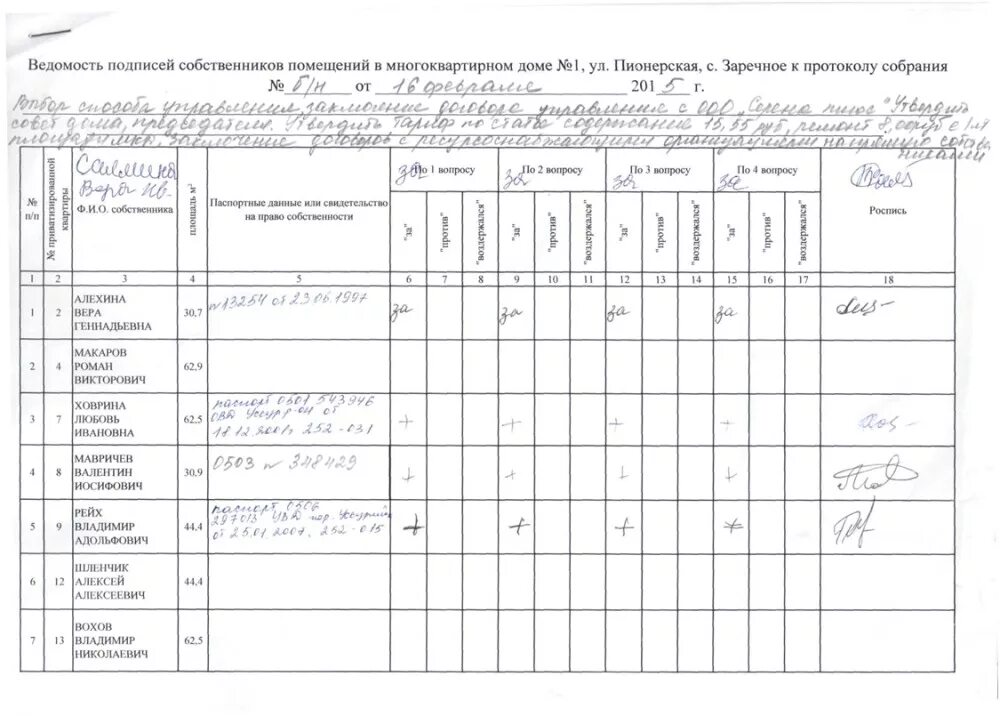 Ведомость подписей собственников помещений в многоквартирном доме №1, ул. Пионерская, с. Заречное к протоколу собрания
№ б/н от 16 февраля 2015 г.
Выбор способа управления, заключение договора управления с ООО "Серена плюс" Утвердить
совет дома, председателя. Утвердить тариф по статье содержание 15,55 руб, ремонт 8, с 1 м
площади. Заключение договоров с ресурсоснабжающими организациями напрямую собств
никами
№ п/п
№ приватизированной квартиры
Вера Ив-
Ф.И.О. собственника
площадь м²
Паспортные данные или свидетельство на право собственности
за По 1 вопросу
за По 2 вопросу
за По 3 вопросу
за По 4 вопросу
Роспись
"за" "против" "воздержался" "за" "против" "воздержался" "за" "против" "воздержался" "за" "против" "воздержался"
1 2 3 4 5 6 7 8 9 10 11 12 13 14 15 16 17 18
1 2 АЛЕХИНА ВЕРА ГЕННАДЬЕВНА 30,7 №13254 от 23.06.1997 за за за за
2 4 МАКАРОВ РОМАН ВИКТОРОВИЧ 62,9
3 7 ХОВРИНА ЛЮБОВЬ ИВАНОВНА 62,5 паспорт 0501 543946 ОВД от 18.12.2001г 252-031 + + + +
4 8 МАВРИЧЕВ ВАЛЕНТИН ИОСИФОВИЧ 30,9 0503 № 348429 + + + +
5 9 РЕЙХ ВЛАДИМИР АДОЛЬФОВИЧ 44,4 паспорт 0506 297013 УВД гор. Уссурийск от 25.01.2007, 252-015 + + + +
6 12 ШЛЕНЧИК АЛЕКСЕЙ АЛЕКСЕЕВИЧ 44,4
7 13 ВОХОВ ВЛАДИМИР НИКОЛАЕВИЧ 62,5